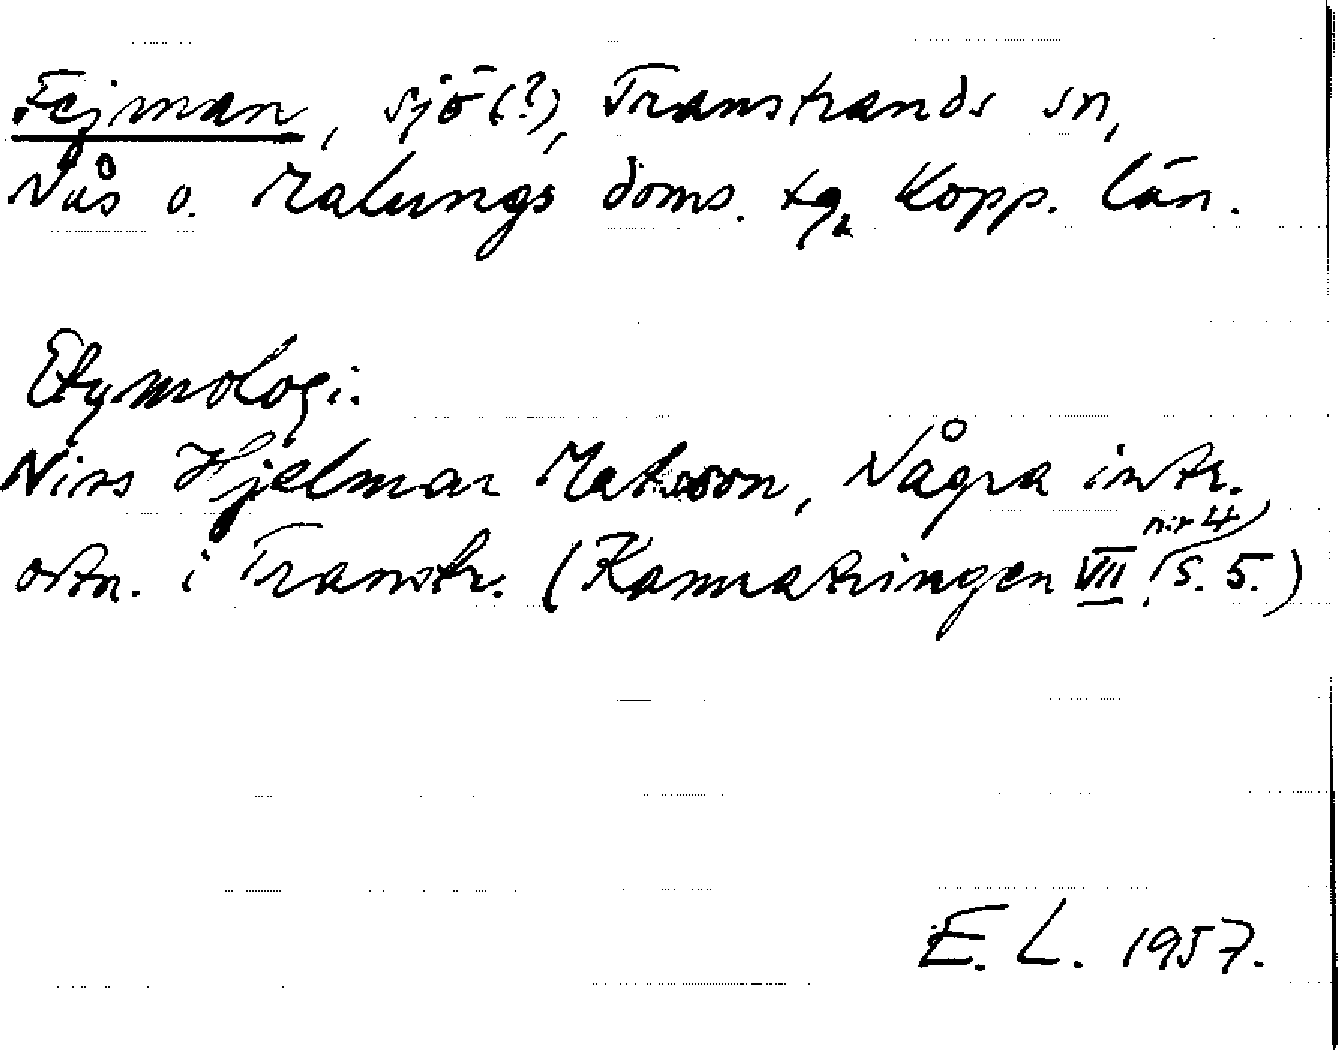 Fejman, sjö(?), Transtrands sn,
Nås o. Malungs doms. tg, Kopp. län.
Etymologi.
Niss Hjalmar Matsson, Några intr.
ortn. i Transtr. (Kamratringen VII nr 4, s. 5.)
E. L. 1957.